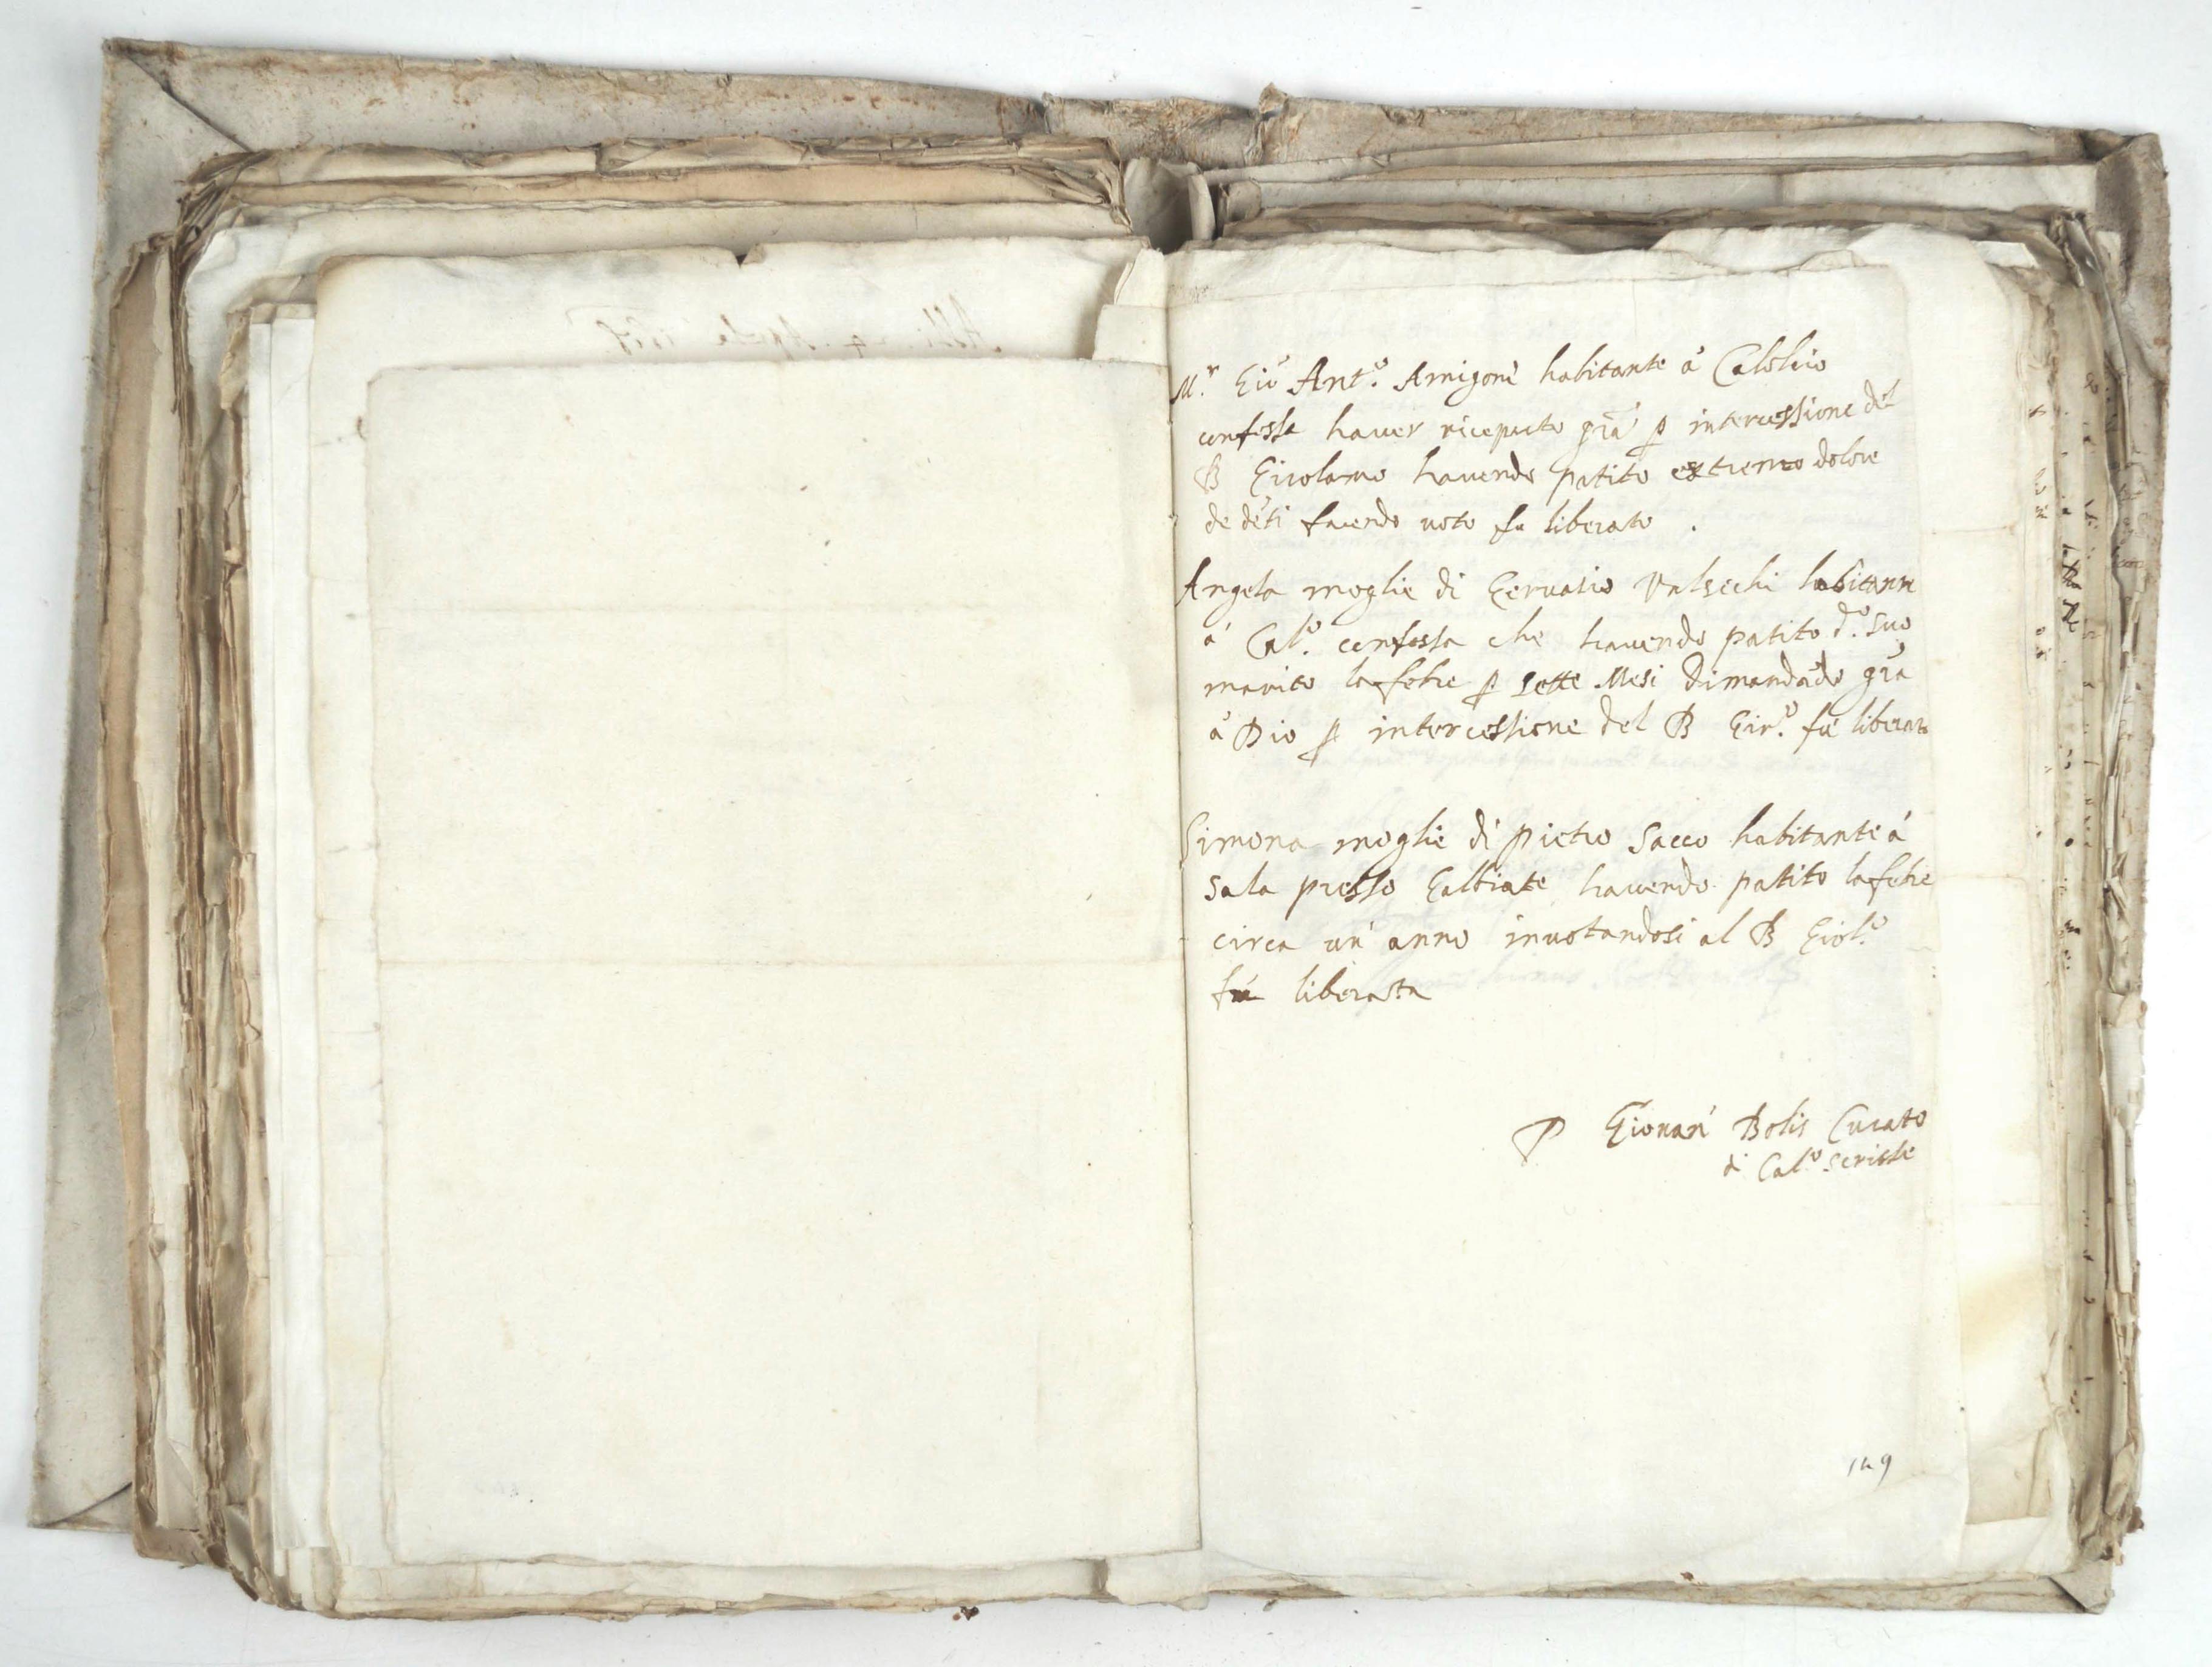 M.r Gio Ant.o Amigoni habitante à Calolcio
confessa hauer riceputo grã p intercessione del
B Girolamo hauendo patito extremo dolore
de dẽti facendo uoto fu liberato .
Angela moglie di Geruasio Valsechi habitann
à Cal.o confessa che hauendo patito d.o suo
marito la febre p sette Mesi dimandãdo grã
à Dio p intercessione del B Gir.o fu liberato
Simona moglie di Pietro Sacco habitante à
Sala presso Galbiate hauendo patito la febre
circa un anno inuotandosi al B Girol.o
fu liberata
P Giouan Bolis Curato
di Cal.o scrisse
149